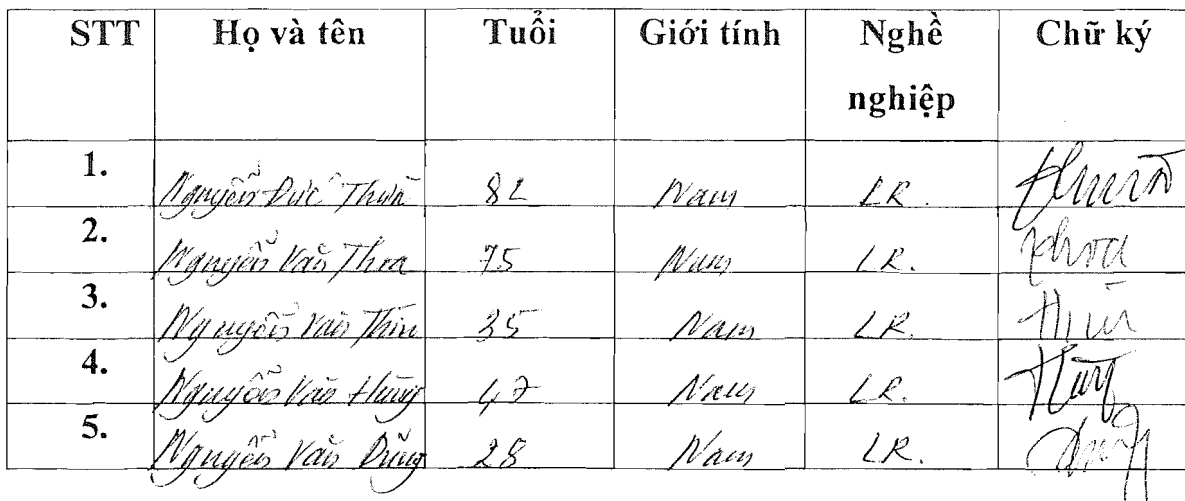 STT Họ và tên Tuổi Giới tính Nghề nghiệp Chữ ký
1. Nguyễn Đức Thuần 82 Nam LR.
2. Nguyễn Văn Thoa 75 Nam LR. Thoa
3. Nguyễn Văn Thìn 35 Nam LR. Thìn
4. Nguyễn Văn Hùng 47 Nam LR. Hùng
5. Nguyễn Văn Dũng 28 Nam LR. Dũng